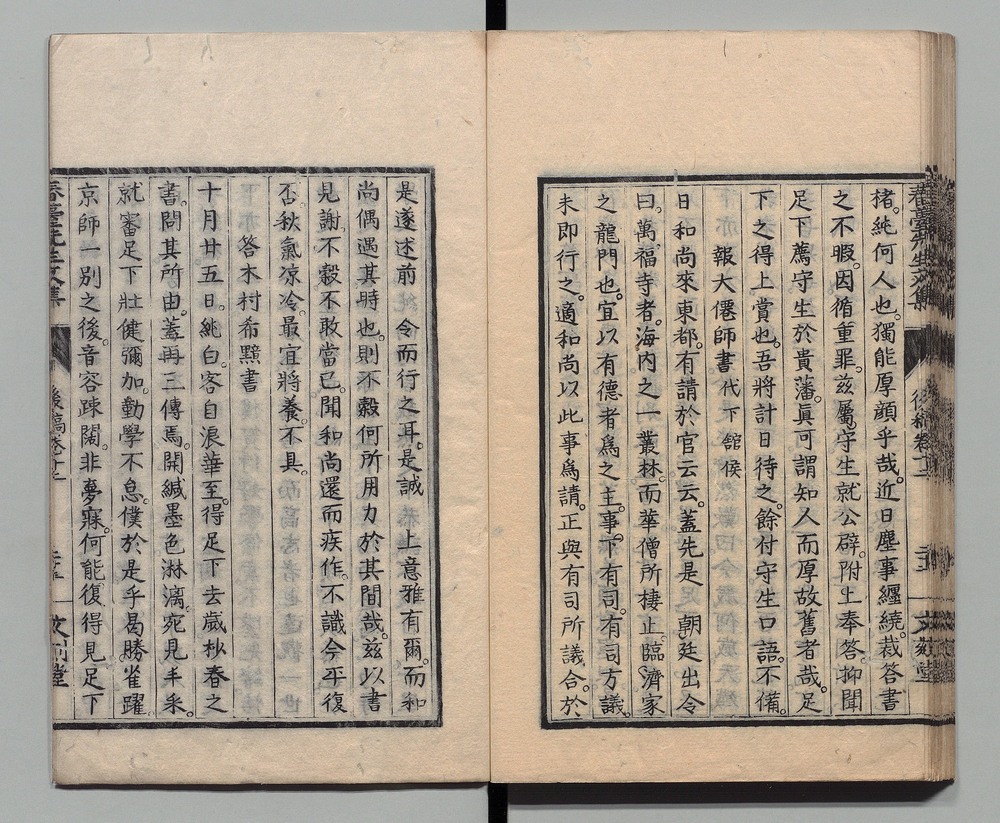 春臺先生文集
後稿卷十二
楮。純何人也。獨能厚顔乎哉。近日塵事纏繞。裁答書
之不暇。因循重罪。茲屬守生就公辟。附上奉答。抑聞
足下薦守生於貴藩。眞可謂知人而厚故舊者哉。足
下之得上賞也。吾將計日待之。餘付守生口語。不備。
報大僊師書代下館侯
日和尚來東都。有請於官云云。蓋先是 朝廷出令
曰。萬福寺者。海内之一叢林。而華僧所棲止。臨濟家
之龍門也。宜以有德者爲之主。事下有司。有司方議。
未即行之。適和尚以此事爲請。正與有司所議合。於
是遂述前 令而行之耳。是誠 上意雅有爾。而和
尚偶遇其時也。則不穀何所用力於其間哉。茲以書
見謝。不穀不敢當已。聞和尚還而疾作。不識今平復
否。秋氣凉冷。最宜將養。不具。
答木村希黯書
十月廿五日。純白。客自浪華至。得足下去歲杪春之
書。問其所由。蓋再三傳焉。開緘墨色淋漓。宛見手采。
就審足下壯健彌加。勤學不息。僕於是乎曷勝雀躍
京師一別之後。音容踈闊。非夢寐。何能復得見足下
春臺先生文集
後稿卷十二